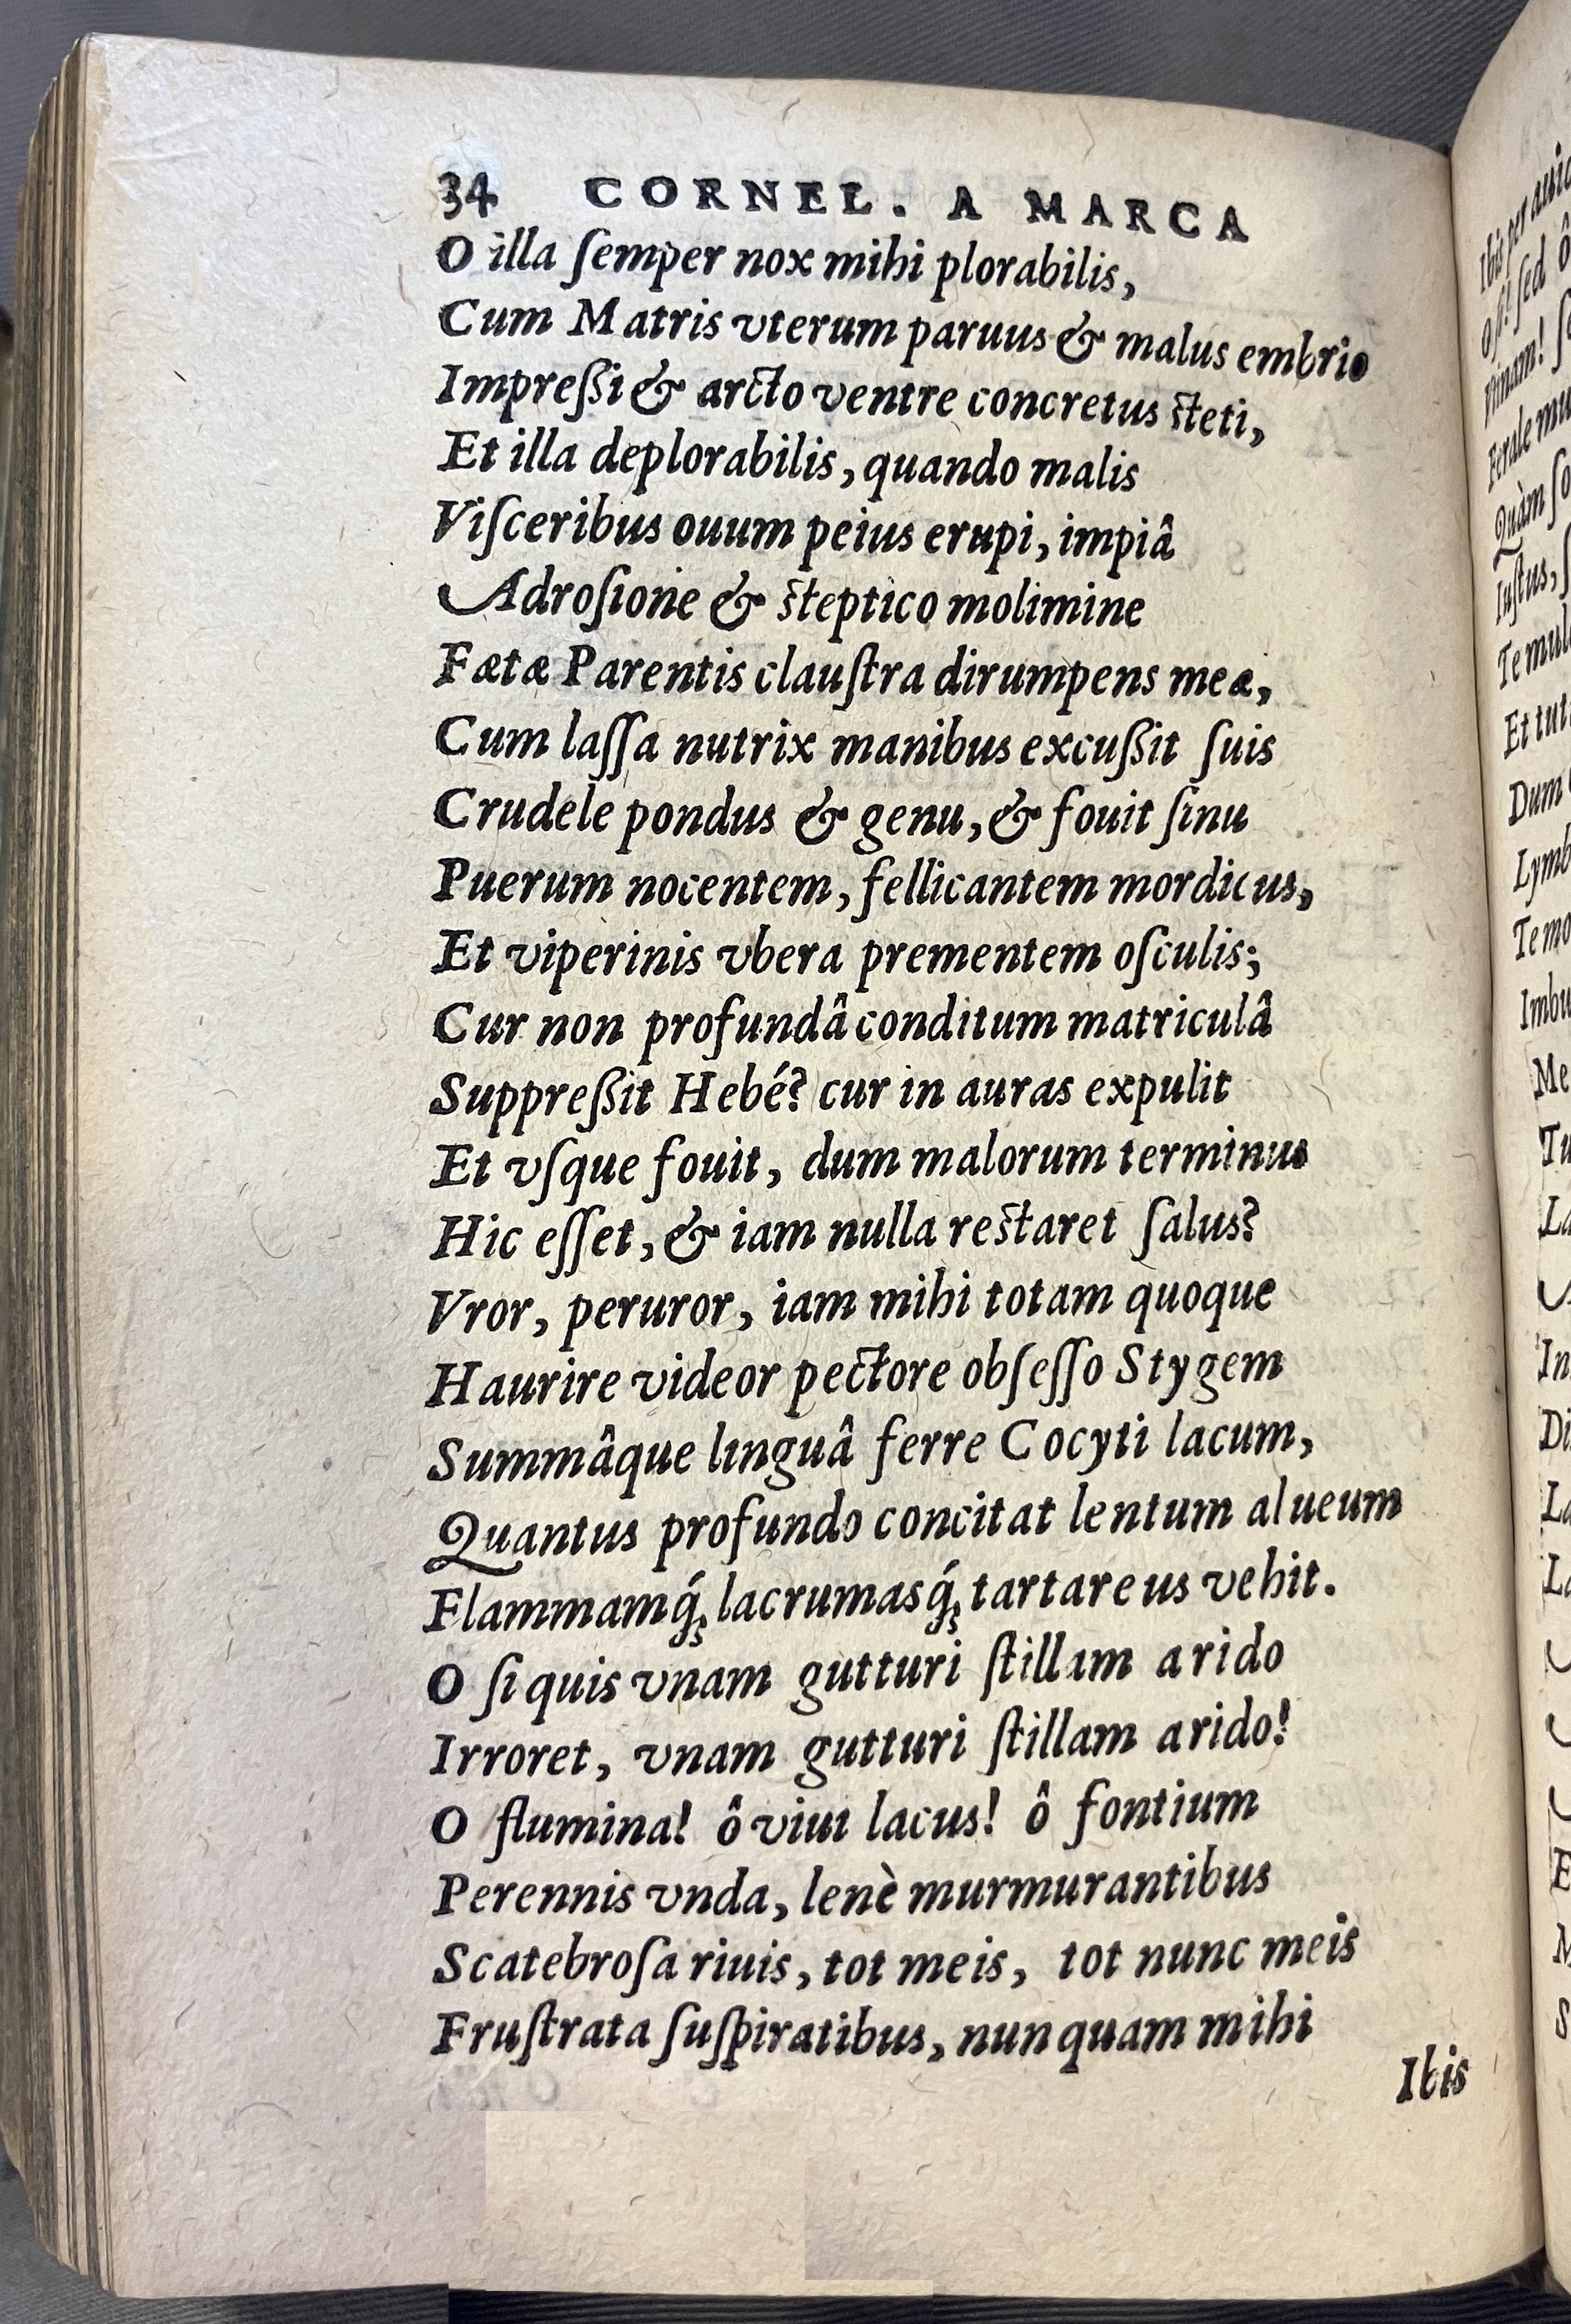 34 CORNEL. A MARCA
O illa ſemper nox mihi plorabilis,
Cum Matris vterum paruus & malus embrio
Impreßi & arcto ventre concretus ſteti,
Et illa deplorabilis, quando malis
Viſceribus ouum peius erupi, impiâ
Adroſione & ſteptico molimine
Fætæ Parentis clauſtra dirumpens meæ,
Cum laſſa nutrix manibus excußit ſuis
Crudele pondus & genu, & fouit ſinu
Puerum nocentem, fellicantem mordicus,
Et viperinis vbera prementem oſculis;
Cur non profundâ conditum matriculâ
Suppreßit Hebé? cur in auras expulit
Et vſque fouit, dum malorum terminus
Hic eſſet, & iam nulla reſtaret ſalus?
Vror, peruror, iam mihi totam quoque
Haurire videor pectore obſeſſo Stygem
Summâque linguâ ferre Cocyti lacum,
Quantus profundo concitat lentum alueum
Flammamq́; lacrumasq́; tartareus vehit.
O ſi quis vnam gutturi ſtillam arido
Irroret, vnam gutturi ſtillam arido!
O flumina! ô viui lacus! ô fontium
Perennis vnda, lenè murmurantibus
Scatebroſa riuis, tot meis, tot nunc meis
Fruſtrata ſuſpiratibus, nunquam mihi
Ibis
Ibis per
O ſi! ſed ô
Vtinam!
Ferale
Quàm
Iuſtus,
Te
Et
Dum
Te
Me
Tu
La
In
Di
La
La
E
M
S